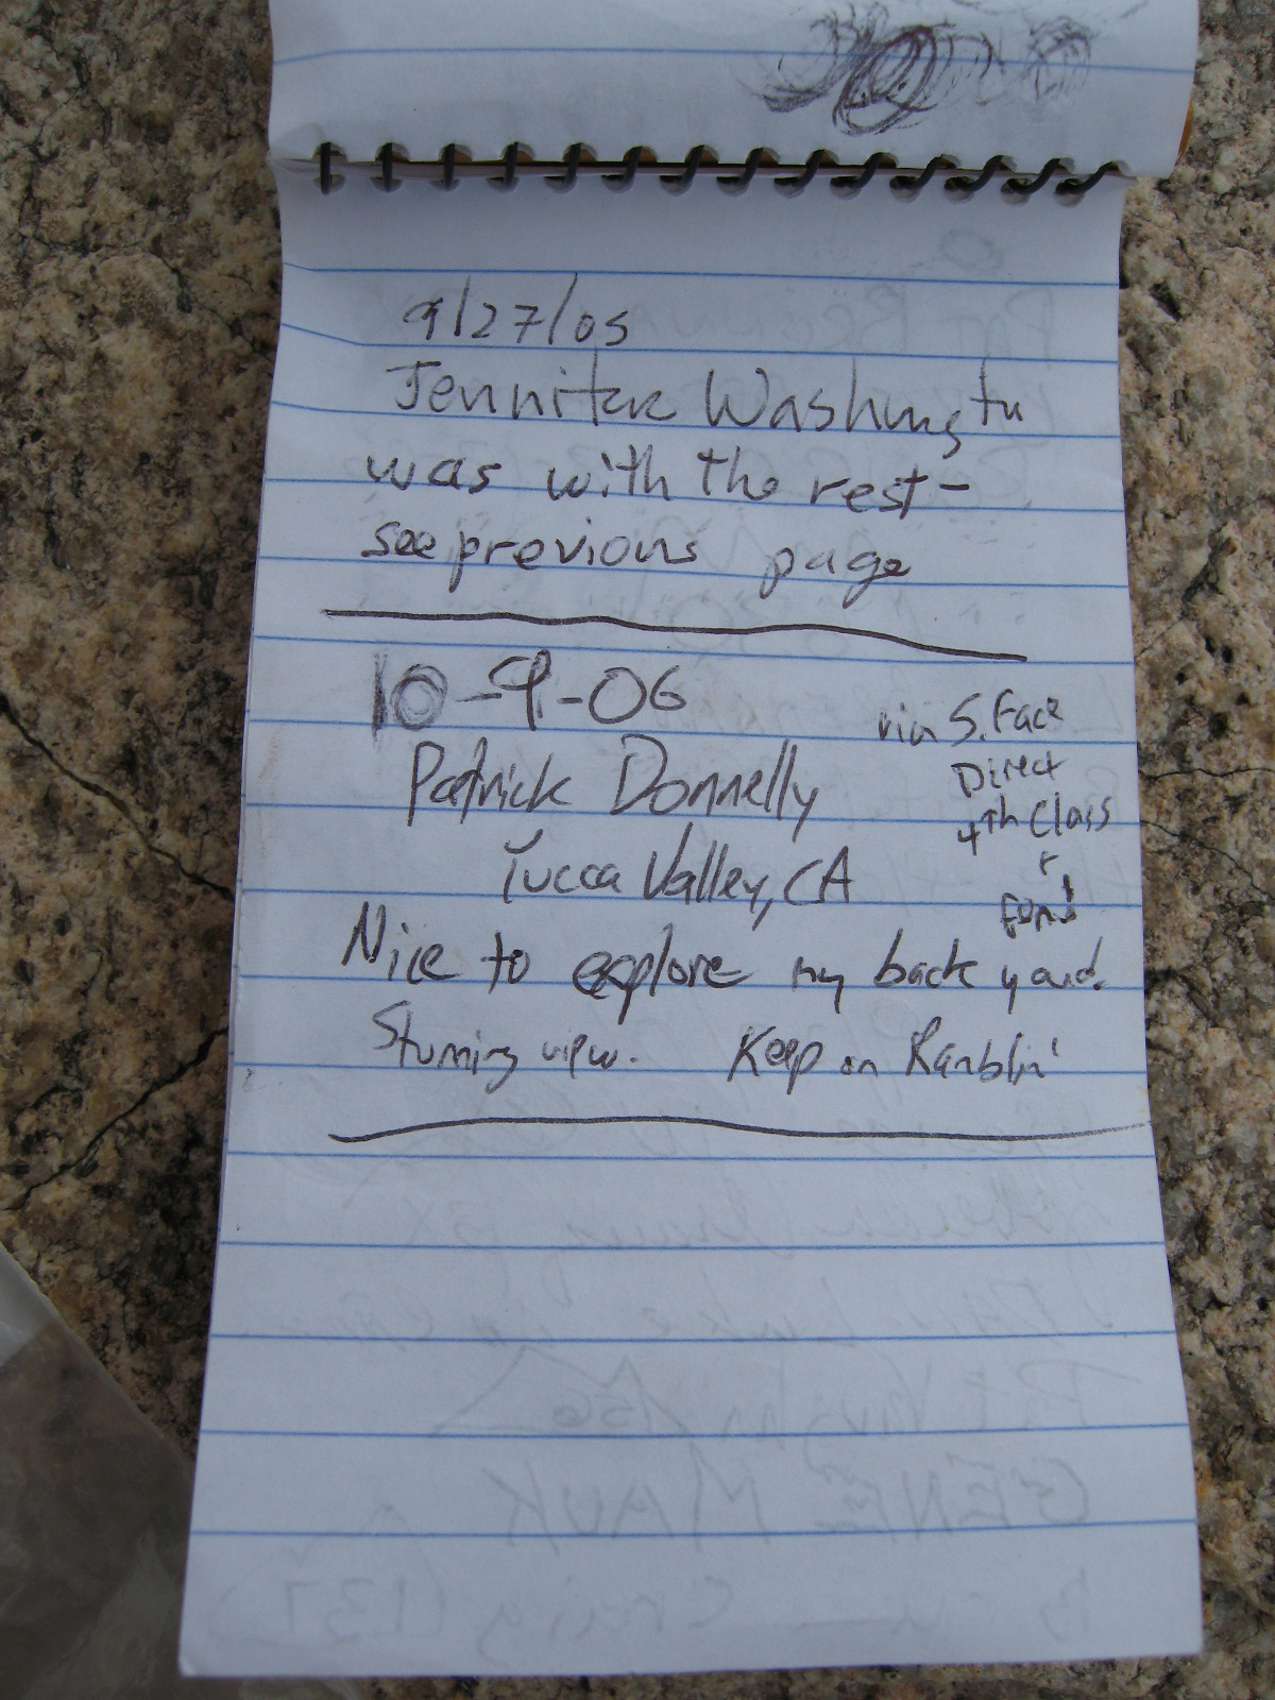 9/27/05
Jennifer Washington
was with the rest-
see previous page
10-9-06
via S. Face
Direct
4th Class
r
Patrick Donnelly
Yucca Valley, CA
Nice to explore my back yard.
Stunning view. Keep on Ramblin'
GENE MAUK